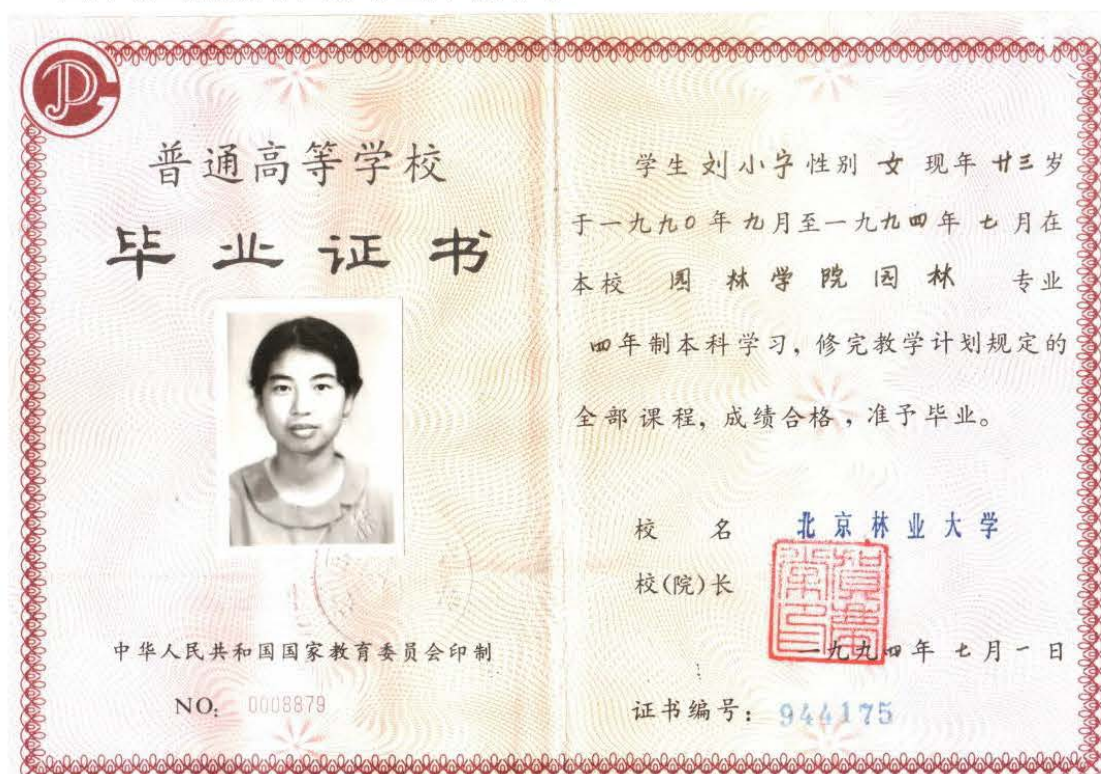 普通高等学校
毕业证书
中华人民共和国国家教育委员会印制
NO: 0008879
学生刘小宇性别 女 现年 廿三岁
于一九九0年九月至一九九四年 七月在
本校 园林学院园林 专业
四年制本科学习, 修完教学计划规定的
全部课程, 成绩合格, 准予毕业。
校 名 北京林业大学
校(院)长
一九九四年 七月一日
证书编号: 944175